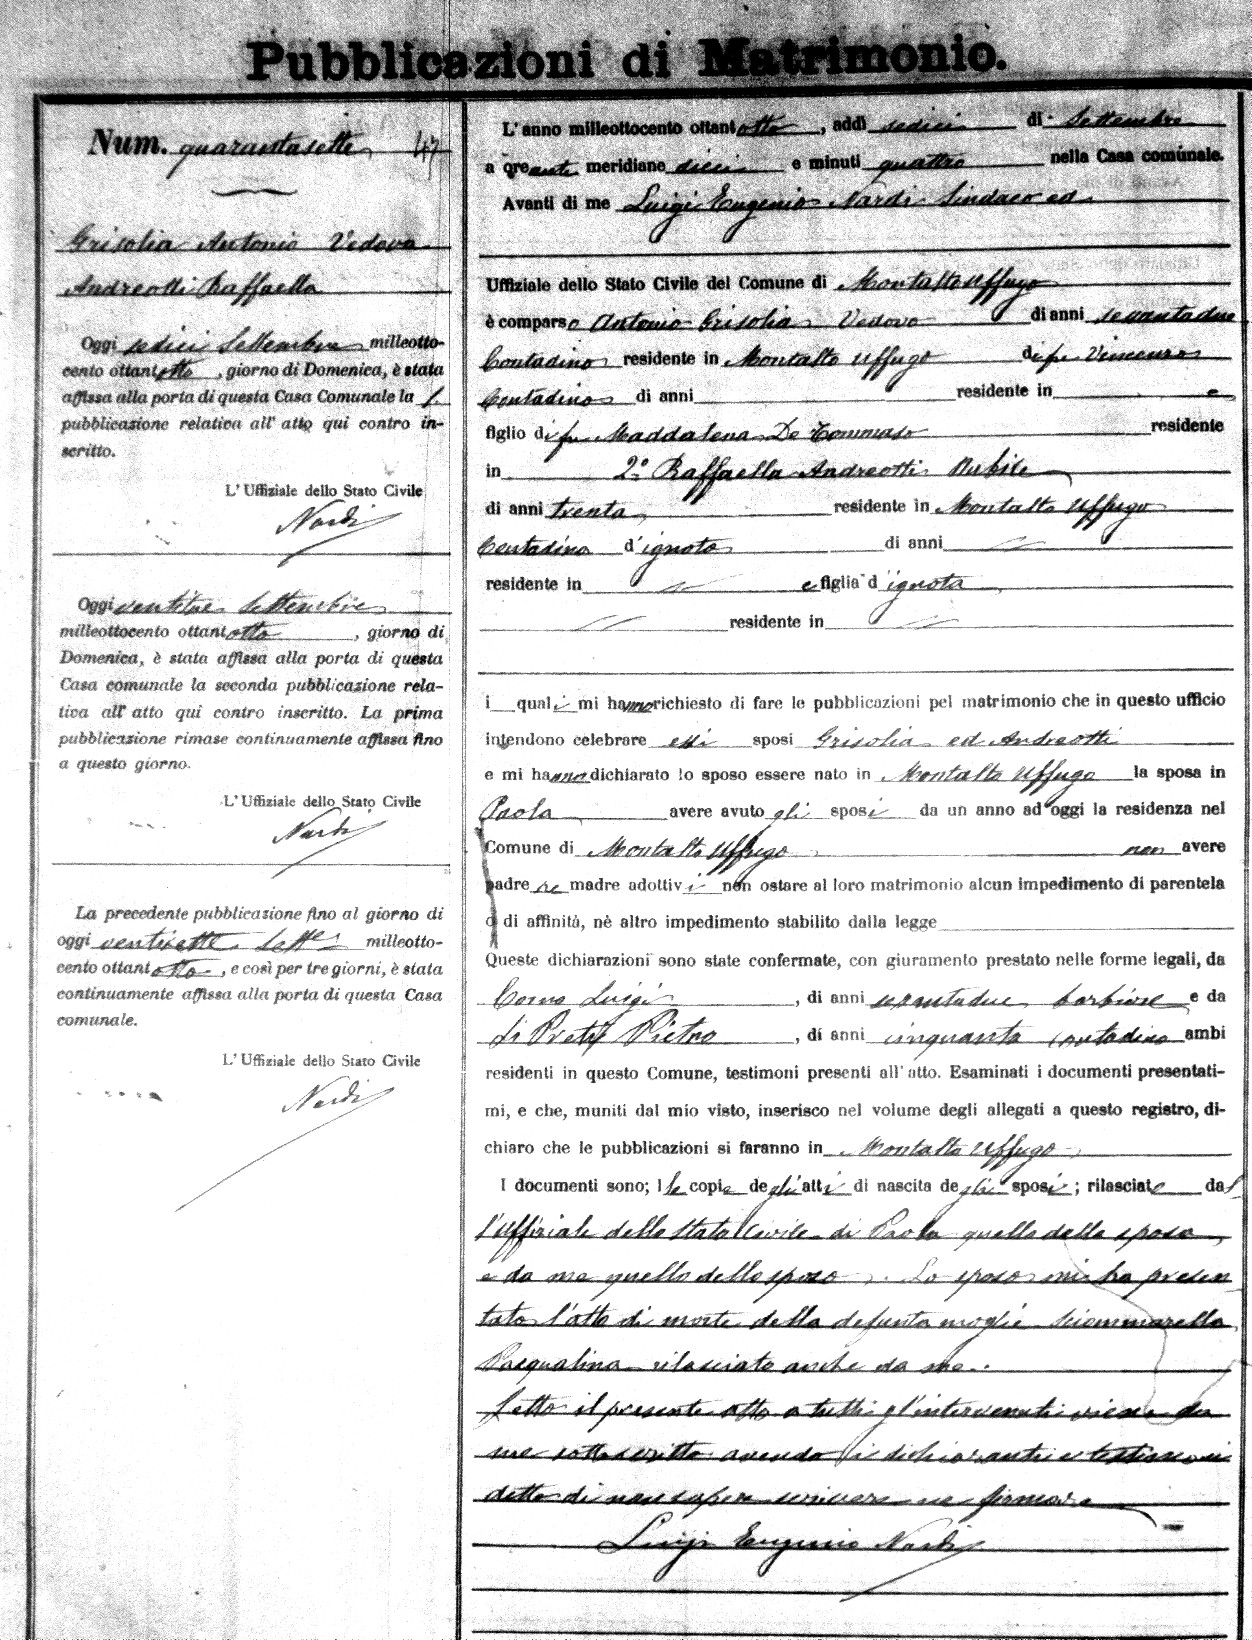 Pubblicazioni di Matrimonio.
Num. quarantasette 47
Grisolia Antonio Vedovo
Andreotti Raffaella
Oggi sedici Settembre milleotto-
cento ottantotto, giorno di Domenica, è stata
affissa alla porta di questa Casa Comunale la 1.
pubblicazione relativa all' atto qui contro in-
scritto.
L' Uffiziale dello Stato Civile
Nardi
Oggi ventitre Settembre
milleottocento ottantotto, giorno di
Domenica, è stata affissa alla porta di questa
Casa comunale la seconda pubblicazione rela-
tiva all' atto qui contro inscritto. La prima
pubblicazione rimase continuamente affissa fino
a questo giorno.
L' Uffiziale dello Stato Civile
Nardi
La precedente pubblicazione fino al giorno di
oggi ventisette Sett.e milleotto-
cento ottantotto, e così per tre giorni, è stata
continuamente affissa alla porta di questa Casa
comunale.
L' Uffiziale dello Stato Civile
Nardi
L' anno milleottocento ottantotto, addì sedici di Settembre
a ore anti meridiane dieci e minuti quattro nella Casa comunale.
Avanti di me Luigi Eugenio Nardi Sindaco ed
Uffiziale dello Stato Civile del Comune di Montalto Uffugo
è comparso Antonio Grisolia Vedovo di anni sessantadue
Contadino residente in Montalto Uffugo di fu Vincenzo
Contadino di anni residente in e
figlio di fu Maddalena De Tommaso residente
in 2° Raffaella Andreotti Nubile
di anni trenta residente in Montalto Uffugo
Contadina d'ignoto di anni
residente in e figlia d'ignota
residente in
i quali mi hanno richiesto di fare le pubblicazioni pel matrimonio che in questo ufficio
intendono celebrare essi sposi Grisolia ed Andreotti
e mi hanno dichiarato lo sposo essere nato in Montalto Uffugo la sposa in
Paola avere avuto gli sposi da un anno ad oggi la residenza nel
Comune di Montalto Uffugo non avere
padre ne madre adottivi non ostare al loro matrimonio alcun impedimento di parentela
o di affinità, nè altro impedimento stabilito dalla legge
Queste dichiarazioni sono state confermate, con giuramento prestato nelle forme legali, da
Luigi, di anni barbiere e da
Pietro, di anni cinquanta contadino ambi
residenti in questo Comune, testimoni presenti all'atto. Esaminati i documenti presentati-
mi, e che, muniti dal mio visto, inserisco nel volume degli allegati a questo registro, di-
chiaro che le pubblicazioni si faranno in Montalto Uffugo
I documenti sono; le copie degli atti di nascita degli sposi; rilasciate dal
l'Uffiziale dello Stato Civile di Paola quella della sposa,
e da me quella dello sposo. Lo sposo mi ha presen
tato l'atto di morte della defunta moglie Sciammarella
Pasqualina rilasciato anche da me.
Letto il presente atto a tutti gl'intervenuti viene da
me sottoscritto avendo i dichiaranti e testimoni
detto di non sapere scrivere ne firmare
Luigi Eugenio Nardi